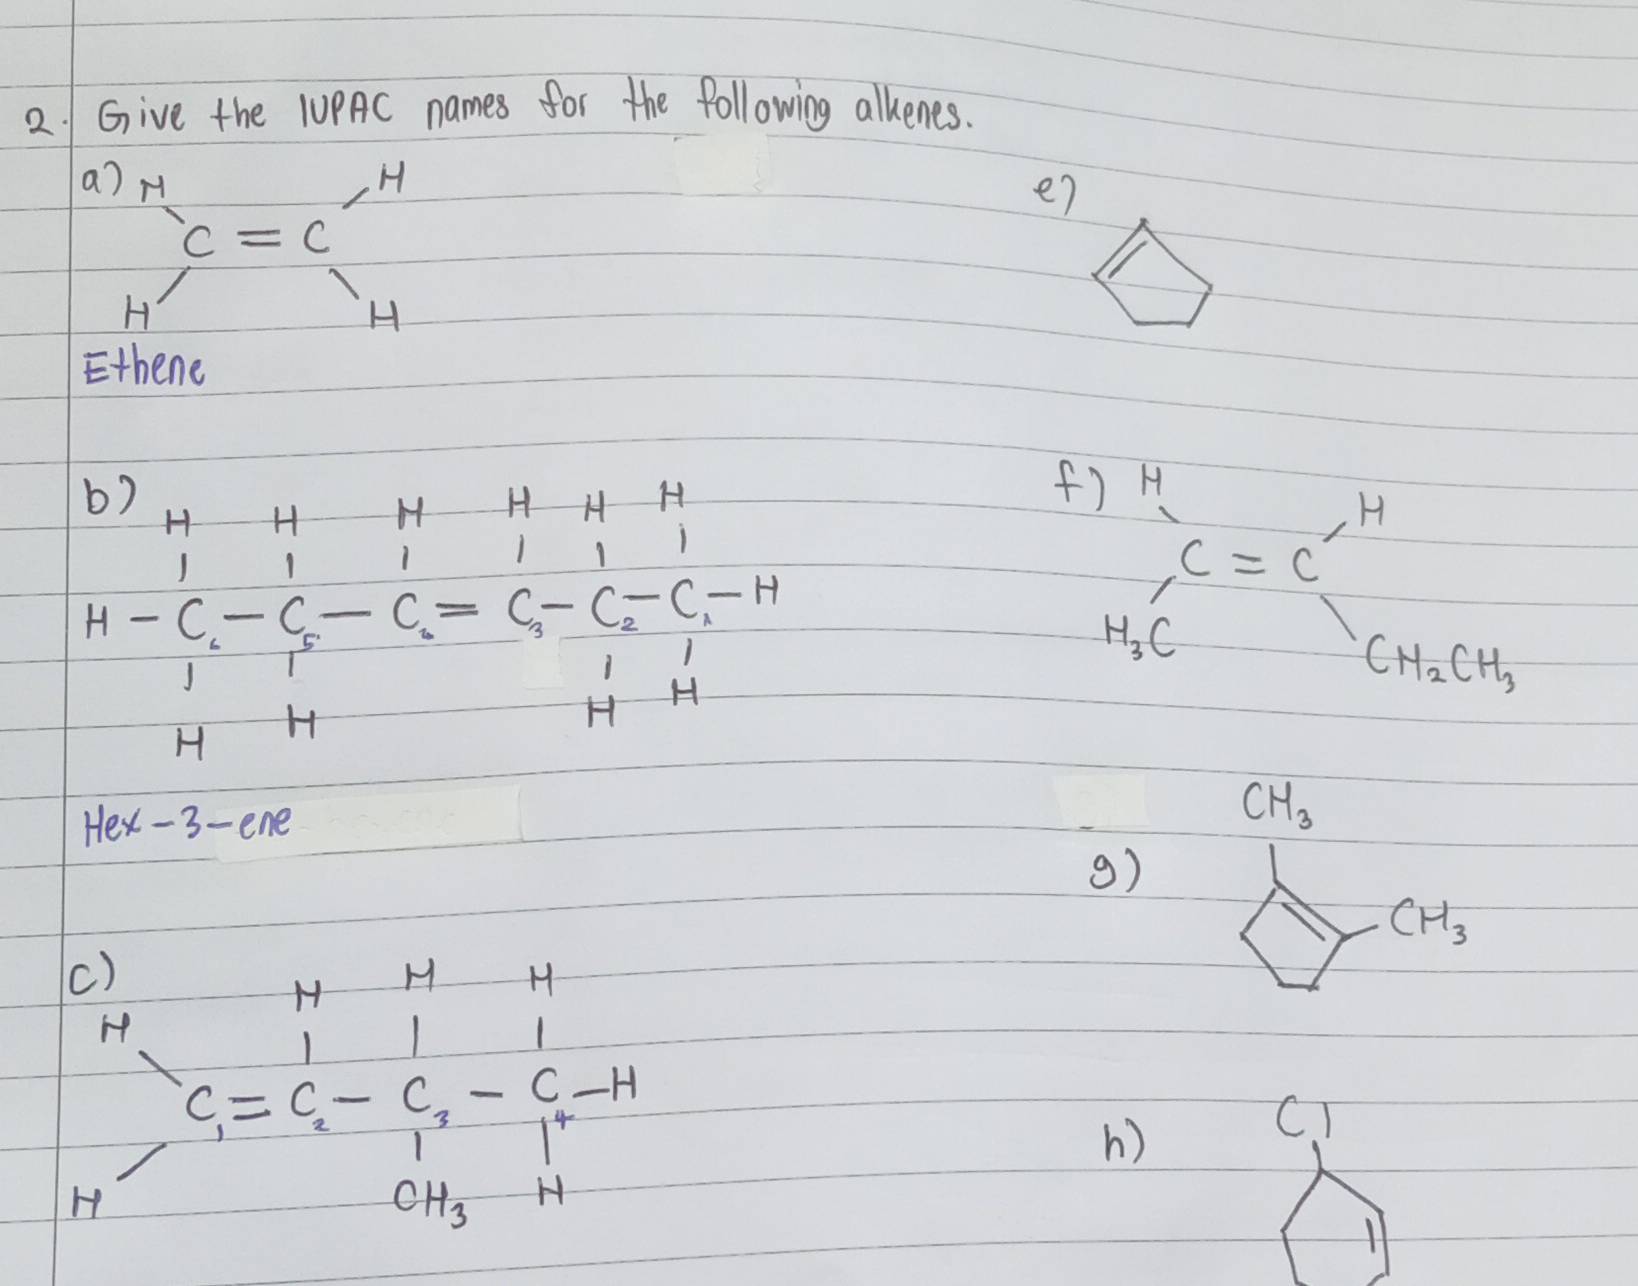 2. Give the IUPAC names for the following alkenes.
a)
H H
C = C
H H
Ethene
b)
H H H H H H
H - C6 - C5 - C4 = C3 - C2 - C1 - H
H H H H
Hex-3-ene
c)
H H H
H
C1 = C2 - C3 - C4 - H
H CH3 H
e)
f)
H H
C = C
H3C CH2CH3
g)
CH3
CH3
h)
Cl